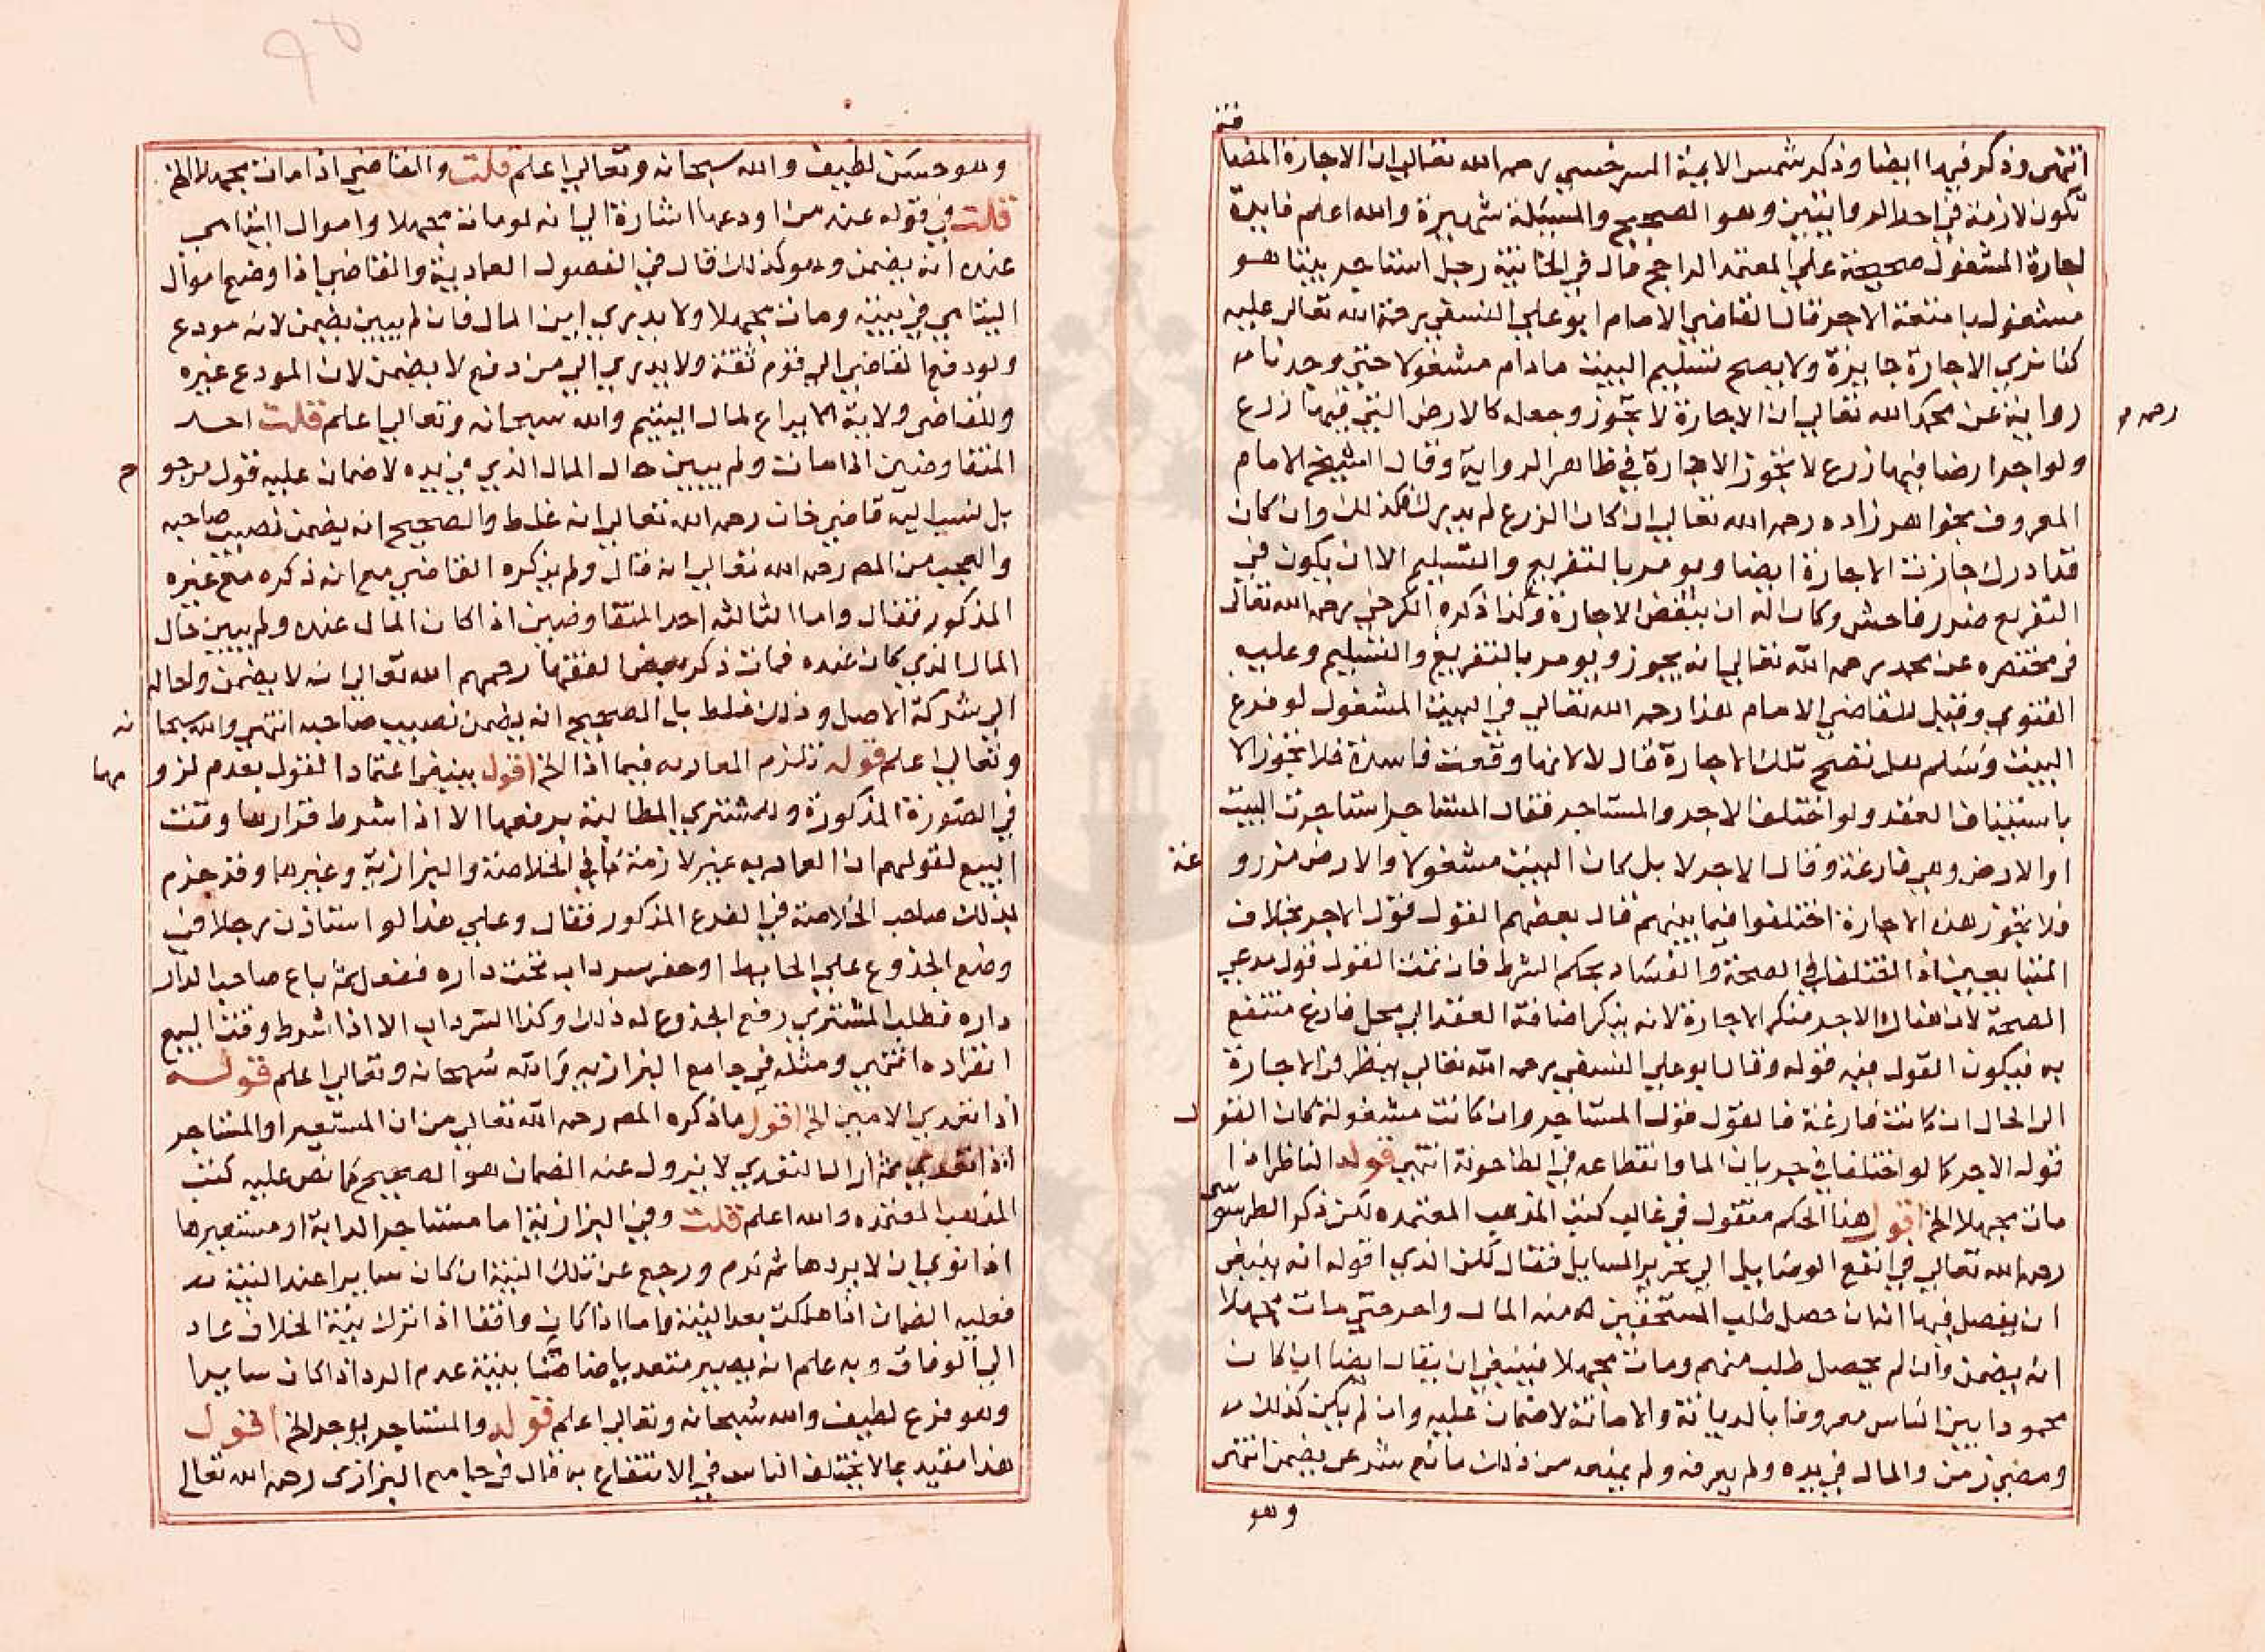 انتهى وذكر فيها ايضا وذكر شمس الايمة السرخسي رحمه الله تعالى ان الاجارة المضا
فة
تكون لازمة في احد الروايتين وهو الصحيح والمسيلة شهيرة والله اعلم فايدة
اجارة المشغول صحيحة على المعتمد الراجح قال في الخانية رجل استاجر بيتا هو
مشغول بامتعة الاجر قال القاضي الامام ابو علي النسفي رحمة الله تعالى عليه
كنا نري الاجارة جايزة ولا يصح تسليم البيت مادام مشغولا حتى وجدنا
رواية عن محمد الله تعالى ان الاجارة لا تجوز وجعله كالارض التي فيها زرع
رحمه
ولو اجر ارضا فيها زرع لا تجوز الاجارة في ظاهر الرواية وقال الشيخ الامام
المعروف بخواهر زاده رحمه الله تعالى ان كان الزرع لم يدرك فكذلك وان كان
قد ادرك جازت الاجارة ايضا ويومر بالتفريغ والتسليم الا ان يكون في
التفريغ ضرر فاحش وكان له ان ينقض الاجارة وكذا ذكره الكرخي رحمه الله تعالى
في مختصره عن محمد رحمه الله تعالى انه يجوز ويومر بالتفريغ والتسليم وعليه
الفتوي وقيل للقاضي الامام هذا رحمه الله تعالى في البيت المشغول لو فرغ
البيت وسلم هل تصح تلك الاجارة قال لا لانها وقعت فاسدة فلا تجوز الا
باستيناف العقد ولو اختلف الاجر والمستاجر فقال المستاجر استاجرت البيت
او الارض وهي فارغة وقال الاجر لا بل كان البيت مشغولا والارض مزرو
عة
فلا تجوز هذه الاجارة اختلفوا فيما بينهم قال بعضهم القول قول الاجر بخلاف
المتبايعين اذا اختلفا في الصحة والفساد بحكم الشرط فان ثمت القول قول مدعي
الصحة لان هناك الاجر منكر الاجارة لانه ينكر اضافة العقد الى محل فارغ منتفع
به فيكون القول فيه قوله وقال ابو علي النسفي رحمه الله تعالى ينظر في الاجارة
الى الحال ان كانت فارغة فالقول قول المستاجر وان كانت مشغولة كان القو
ل
قوله الاجر كما لو اختلفا في جريان الما وانقطاعه في الطاحونة انتهى قوله الناظر اذا
مات مجهلا الخ اقول هذا الحكم منقول في غالب كتب المذهب المعتمده لكن ذكر الطرسو
سي
رحمه الله تعالى في انفع الوسايل الى تحرير المسايل فقال لكن الذي اقوله انه ينبغي
ان يفصل فيها انه ان حصل طلب المستحقين منه المال واخر حتى مات مجهلا
انه يضمن وان لم يحصل طلب منهم ومات مجهلا فينبغي ان يقال ايضا ان كان
محمودا بين الناس معروفا بالديانة والامانة لا ضمان عليه وان لم يكن كذلك
ومضي زمن والمال في يده ولم يفرقه ولم يمنعه من ذلك مانع شرعي يضمن انتهى
وهو
وهو حسن لطيف والله سبحانه وتعالى اعلم قلت والقاضي اذا مات مجهلا الخ
قلت في قوله عند من اودعها اشارة الى انه لو مات مجهلا واموال اليتامي
عنده انه يضمن وهو كذلك قال في الفصول العمادية والقاضي اذا وضع اموال
اليتامي في بيته ومات مجهلا ولا يدري اين المال فان لم يبين يضمن لانه مودع
ولو دفع القاضي الى قوم ثقة ولا يدري الى من دفع لا يضمن لان المودع غيره
وللقاضي ولاية الايداع لمال اليتيم والله سبحانه وتعالى اعلم قلت احد
المتفاوضين اذا مات ولم يبين حال المال الذي في يده لا ضمان عليه قول مرجو
ح
بل نسب اليه قاضي خان رحمه الله تعالى انه غلط والصحيح انه يضمن نصيب صاحبه
والعجب من المص رحمه الله تعالى انه قال ولم يذكره القاضي مع انه ذكره مع غيره
المذكور فقال واما الثالثه احد المتفاوضين اذا كان المال عنده ولم يبين حال
المال الذي كان عنده فمات ذكر بعض الفقها رحمهم الله تعالى انه لا يضمن واحاله
الى شركة الاصل وذلك غلط بل الصحيح انه يضمن نصيب صاحبه انتهى والله سبحا
نه
وتعالى اعلم قوله تلزم العاريه فيما اذا الخ اقول ينبغي اعتماد القول بعدم لزو
مها
في الصورة المذكورة وللمشتري المطالبة برفعها الا اذا شرط قرارها وقت
البيع لقولهم ان العاريه غير لازمة كما في الخلاصة والبزازية وغيرهما وقد جزم
بذلك صاحب الخلاصة في الفرع المذكور فقال وعلى هذا لو استاذن رجلا في
وضع الجذوع على الحايط او حفر سرداب تحت داره ففعل ثم باع صاحب الدار
داره فطلب المشتري رفع الجذوع له ذلك وكذا السرداب الا اذا شرط وقت البيع
انتهي ومثله في جامع البزازيه والله سبحانه وتعالى اعلم قوله
اذا تعدي الامين الخ اقول ما ذكره المص رحمه الله تعالى من ان المستعير او المستاجر
اذا تعدي ثم ازال التعدي لا يزول عنه الضمان هو الصحيح كما نص عليه كتب
المذهب المعتمده والله اعلم قلت وفي البزازية اما مستاجر الدابة او مستعيرها
اذا نوي ان لا يردها ثم ندم ورجع عن تلك النية ان كان سايرا عند النية
فعليه الضمان اذا هلكت بعد النية واما اذا كان واقفا اذا ترك نية الخلاف عاد
الى الوفاق وبه علم انه يصير متعديا ضامنا بنية عدم الرد اذا كان سايرا
وهو فرع لطيف والله سبحانه وتعالى اعلم قوله والمستاجر يوجر الخ اقول
هذا مقيد بما لا يختلف الناس في الانتفاع به قال في جامع البزازى رحمه الله تعالى